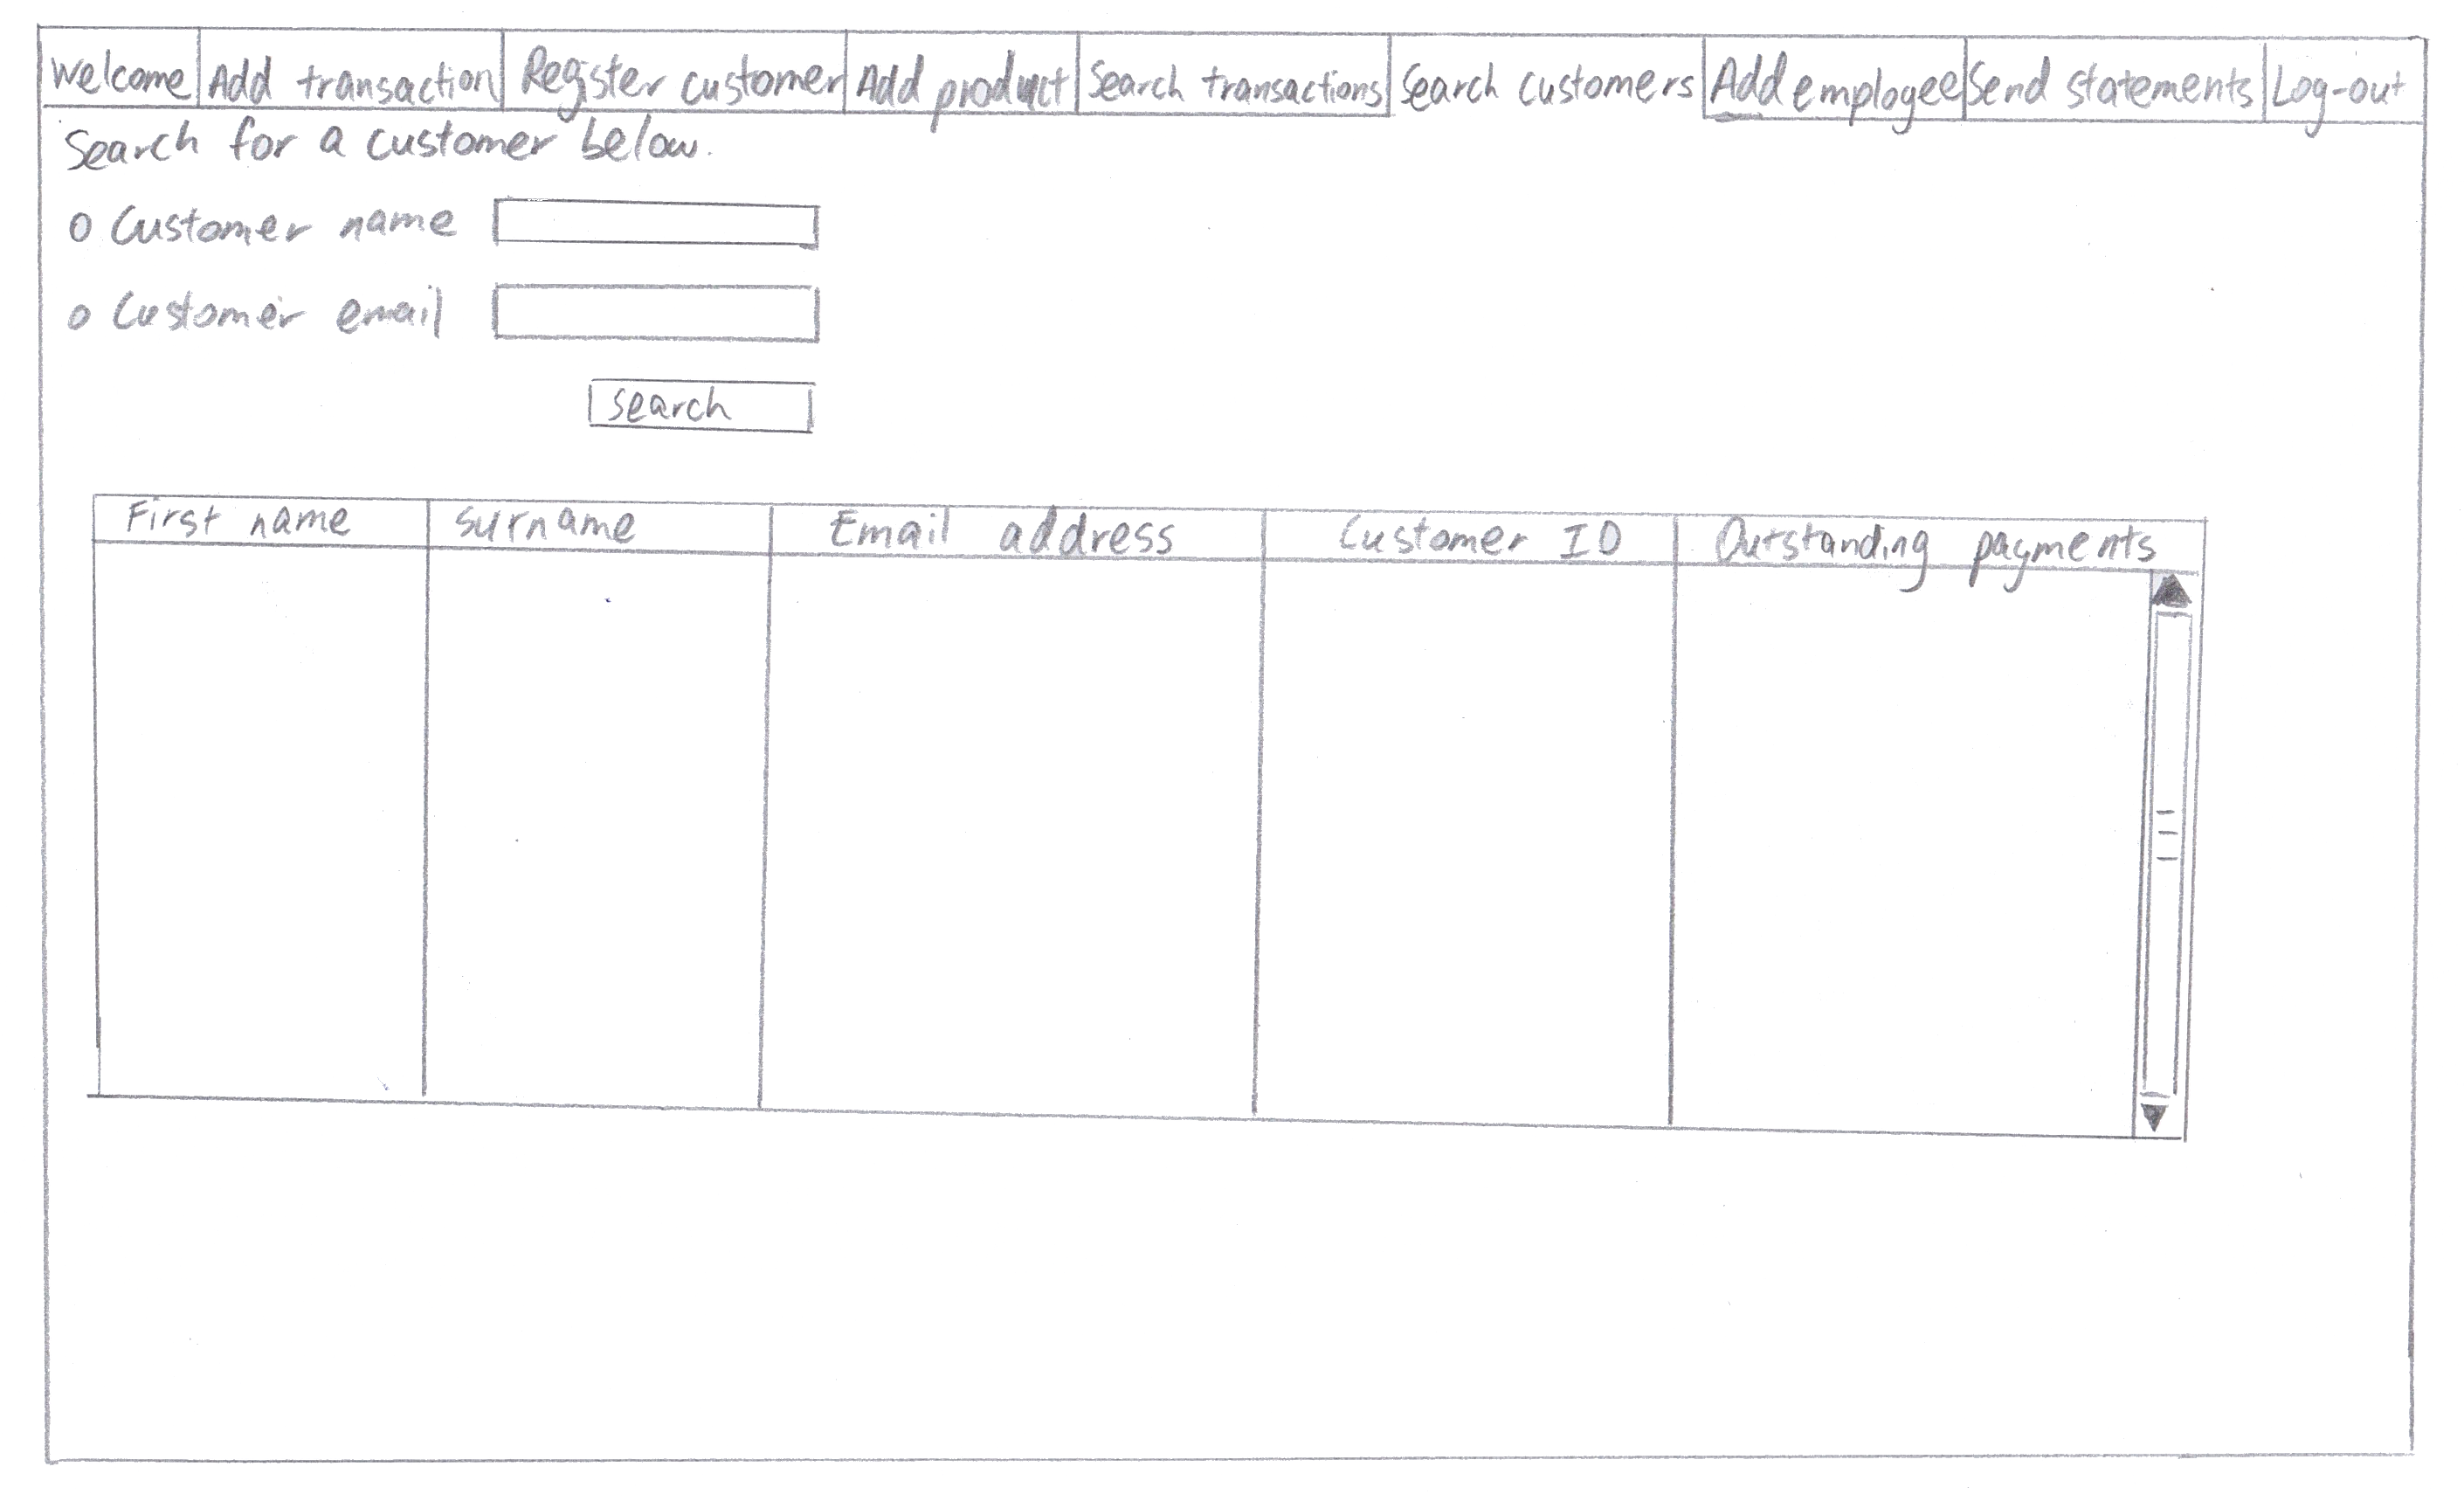 Welcome Add transaction Register customer Add product Search transactions Search customers Add employee Send statements Log-out
Search for a customer below.
Customer name
Customer email
search
First name surname Email address Customer ID Outstanding payments